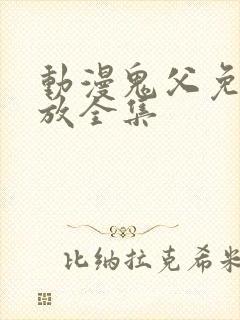 動漫鬼父免
放全集
比纳拉克希米